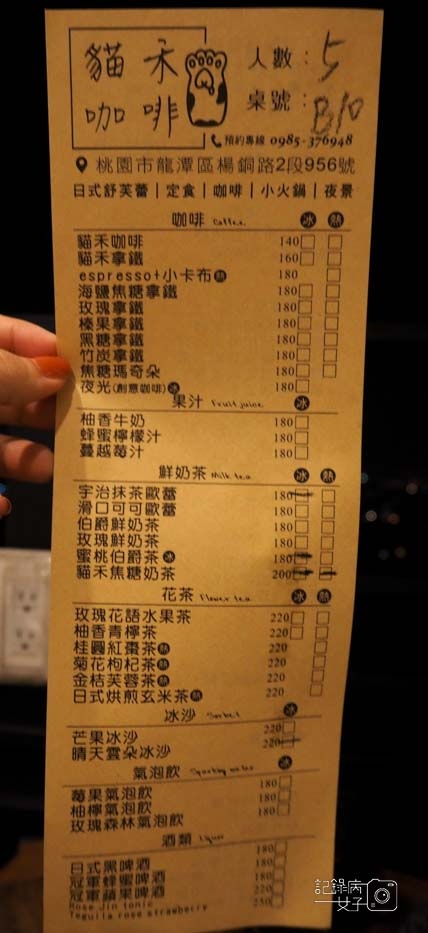 貓禾
咖啡
人數：5
桌號：B10
預約專線 0985-376948
桃園市龍潭區楊銅路2段956號
日式舒芙蕾｜定食｜咖啡｜小火鍋｜夜景
咖啡 Coffee 冰 熱
貓禾咖啡 140
貓禾拿鐵 160
espresso+小卡布 熱 180
海鹽焦糖拿鐵 180
玫瑰拿鐵 180
榛果拿鐵 180
黑糖拿鐵 180
竹炭拿鐵 180
焦糖瑪奇朵 180
夜光(創意咖啡) 冰 180
果汁 Fruit juice 冰
柚香牛奶 180
蜂蜜檸檬汁 180
蔓越莓汁 180
鮮奶茶 Milk tea 冰 熱
宇治抹茶歐蕾 180
滑口可可歐蕾 180
伯爵鮮奶茶 180
玫瑰鮮奶茶 180
蜜桃伯爵茶 冰 180
貓禾焦糖奶茶 200
花茶 Flower tea 冰 熱
玫瑰花語水果茶 220
柚香青檸茶 220
桂圓紅棗茶 熱 220
菊花枸杞茶 熱 220
金桔芙蓉茶 熱 220
日式烘煎玄米茶 熱 220
冰沙 Sorbet 冰
芒果冰沙 220
晴天雲朵冰沙 220
氣泡飲 冰
莓果氣泡飲 180
柚檸氣泡飲 180
玫瑰森林氣泡飲 180
酒類 Liquor
日式黑啤酒 180
冠軍蜂蜜啤酒 180
冠軍蘋果啤酒 180
Rose Jin tonic 220
Tequila rose strawberry 250
記錄病
女子